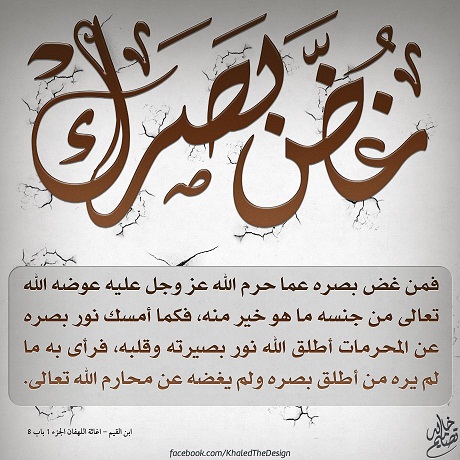 غُضَّ بَصَرَك
فمن غض بصره عما حرم الله عز وجل عليه عوضه الله
تعالى من جنسه ما هو خير منه، فكما أمسك نور بصره
عن المحرمات أطلق الله نور بصيرته وقلبه، فرأى به ما
لم يره من أطلق بصره ولم يغضه عن محارم الله تعالى.
ابن القيم - اغاثة اللهفان الجزء 1 باب 8
facebook.com/KhaledTheDesign